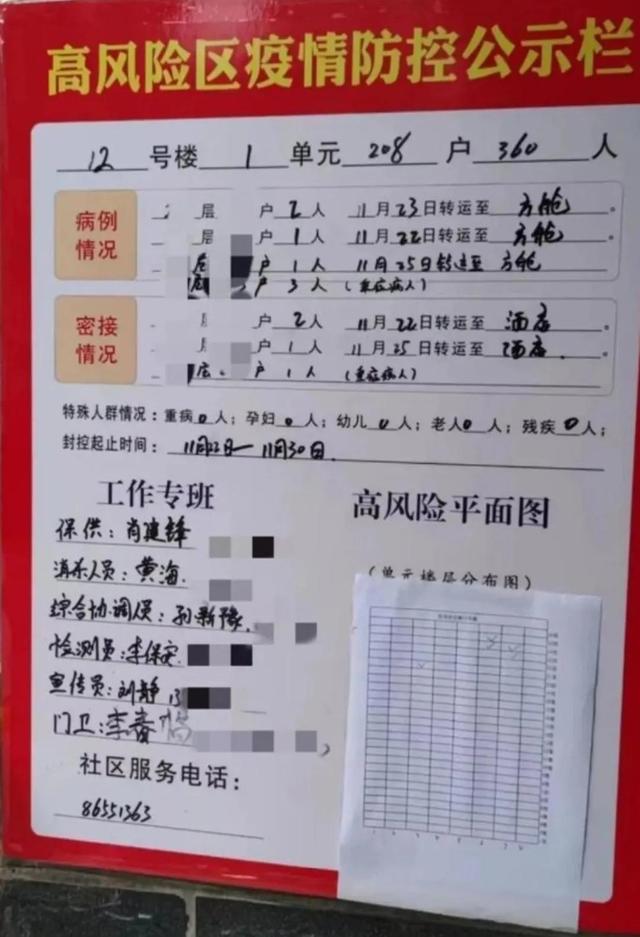 高风险区疫情防控公示栏
12号楼 1 单元 208 户 360 人
病例情况
2 层 户 2 人 11月23日转运至 方舱。
层 户 1 人 11月22日转运至 方舱。
层 户 1 人 11月25日转运至 方舱
层 户 3 人 (重症病人)
密接情况
层 户 2 人 11月22日转运至 酒店。
层 户 1 人 11月25日转运至 酒店.
层 户 1 人 (重症病人)
特殊人群情况:重病0人;孕妇0人;幼儿0人;老人0人;残疾0人;
封控起止时间:11月22日—11月30日.
工作专班
保供:肖建锋
消杀人员:黄海
综合协调员:孙新豫
检测员:李保安
宣传员:刘静 13
门卫:李春
社区服务电话:
86551363
高风险平面图
(单元楼层分布图)